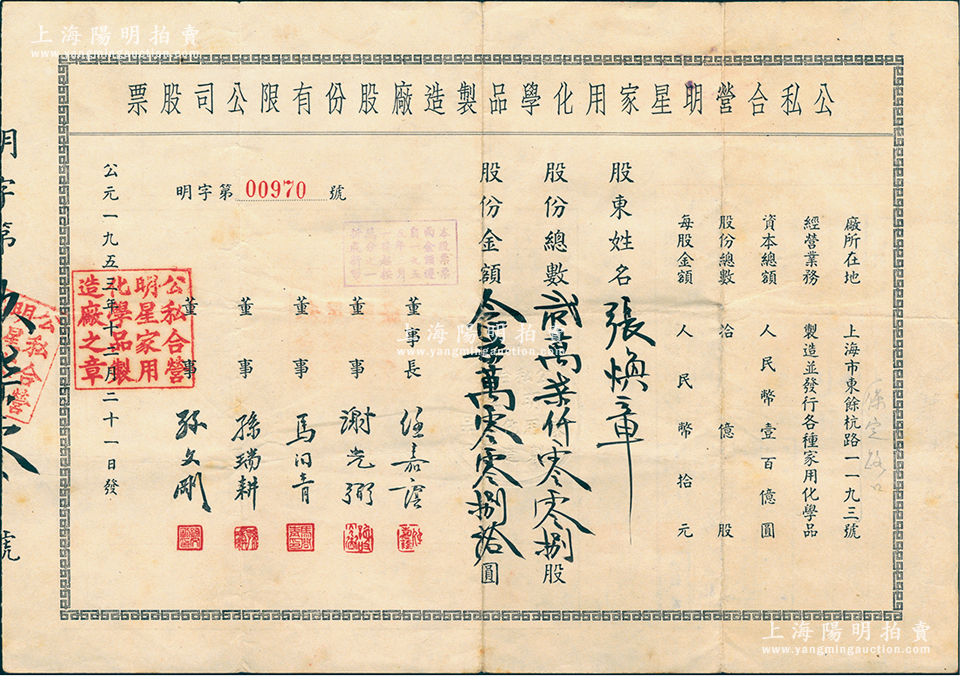 上海陽明拍賣
www.yangmingauction.com
公私合營明星家用化學品製造廠股份有限公司股票
廠所在地 上海市東餘杭路一一九三號
經營業務 製造並發行各種家用化學品
資本總額 人民幣壹百億圓
股份總數 拾億股
每股金額 人民幣拾元
股東姓名 張煥章
股份總數 貳萬柒仟零零捌股
股份金額 萬零零捌拾圓
董事長 伍嘉
董事 謝光弼
董事 馬
董事 孫瑞耕
董事 孫文剛
明字第 00970 號
公元一九五三年十二月二十一日發
公私合營明星家用化學品製造廠之章
明字第
號
公私合營
明星
上海陽明拍賣
www.yangmingauction.com
上海陽明拍賣
www.yangmingauction.com